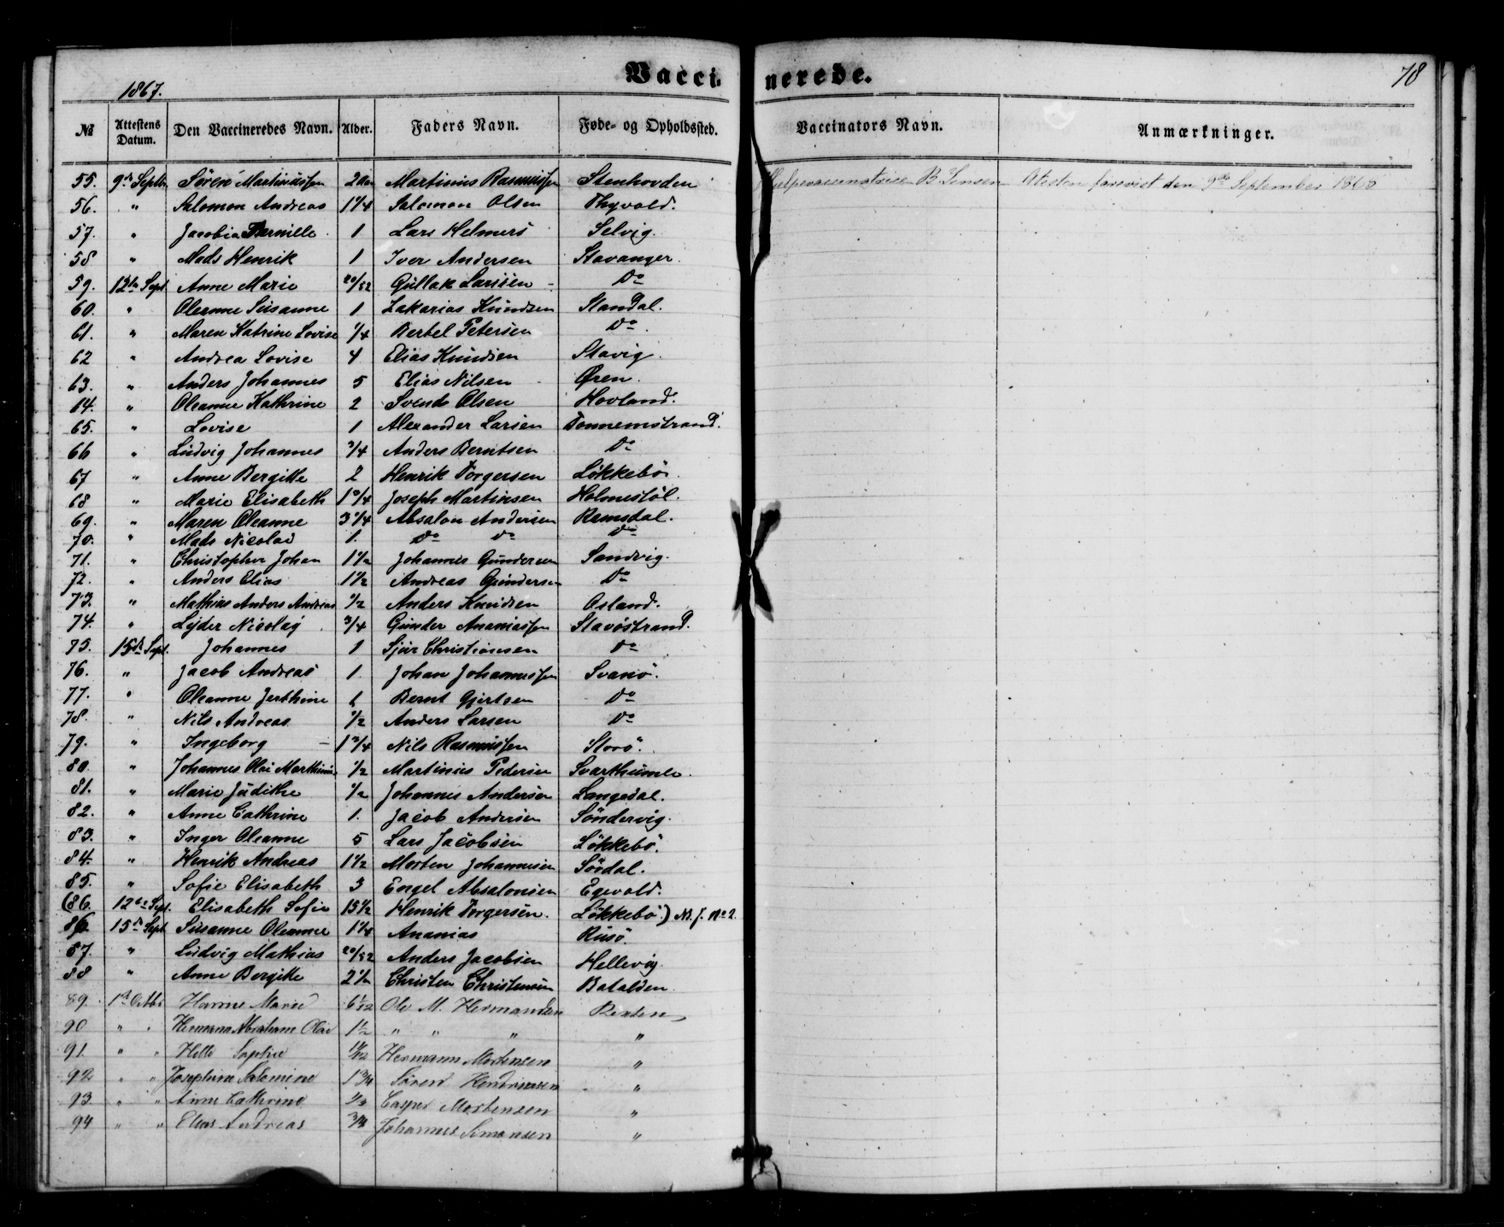 Vaccinerede.
78
1867.
№ Attestens Datum. Den Vaccineredes Navn. Alder. Faders Navn. Føde- og Opholdssted. Vaccinators Navn. Anmærkninger.
55. 9de Septbr Sören Martinussen 2 Martinus Rasmussen Stenhovden B. Jensen Atesten forevist den 9de September 1868
56. " Salomon Andreas 1 1/4 Salomon Olsen Thyvold.
57. " Jacobia Pernille 1 Lars Helmers Selvig.
58 " Mads Henrik 1 Iver Andersen Stavanger.
59. 13de Sept. Anne Marie 20/52 Gullak Larssen - Do
60. " Oleanne Susanne 1 Zakarias Knudsen Standal.
61. " Maren Katrine Lovise 1/4 Bertel Petersen Do
62 " Andrea Lovise 4 Elias Knudsen Stavig.
63. " Anders Johannes 5 Elias Nilsen Øren.
14. " Oleanne Kathrine 2 Svends Olsen Hovland.
65. " Lovise 1 Alexander Larsen Tonnemstrand.
66 " Ludvig Johannes 3/4 Anders Berntsen Do
67 " Anne Bergitte 2 Henrik Torgersen Løkkebø.
68 " Marie Elisabeth 1 3/4 Joseph Martinsen Holmestøl.
69. " Maren Oleanne 3 1/4 Absalon Andersen Ramsdal.
70. " Mads Nicolai 1. Do Do Do
71. " Christopher Johan 1 1/2 Johannes Gundersen Sandvig.
72. " Anders Elias 1 1/2 Andreas Gundersen Do
73. " Mathias Anders Andreas 1/2 Anders Knudsen Osland.
74. " Lyder Nicolay 3/4 Gunder Ananiassen Stavøstrand.
75. 15de Sept. Johannes 1 Sjur Christiansen Do
76. " Jacob Andreas 1 Johan Johannessen Svanø.
77. " Oleanne Jerthine 1 Bernt Gjertsen Do
78. " Nils Andreas 1/2 Anders Larsen Do
79. " Ingeborg - 1 3/4 Nils Rasmussen Storø.
80. " Johannes Olai Marthinus 1/2 Martinus Pedersen Svarthumle.
81. " Marie Judithe 1/2 Johannes Andersen Langedal.
82. " Anne Cathrine 1. Jacob Andersen Søndervig.
83. " Inger Oleanne 5 Lars Jacobsen Løkkebø.
84. " Henrik Andreas 1 1/2 Morten Johannesen Sørdal.
85. " Sofie Elisabeth 3 Engel Absalonsen Egevold.
(86. 12te Sept. Elisabeth Sofie 15 1/2 Henrik Torgersen. Løkkebø.) No 2.
86. 15de Sept. Susanne Oleanne 1 1/4 Ananias Rusø.
87. " Ludvig Mathias 20/52 Anders Jacobsen Hellevig.
88 " Anne Bergitte 2 1/2 Christen Christensen Batalden.
89. 1ste Octbr Hanne Marie 6/12 Ole M. Hermansen
90 " " Hermana Abraham Olai 1 1/2 " " " "
91. " " Sophie Hermann Mortensen "
92 " " Josephine Salomine 1 3/4 Sören "
93 " " Anne Cathrine Casper Mortensen "
94 " " Elias Andreas 3/4 Johannes Simonsen "